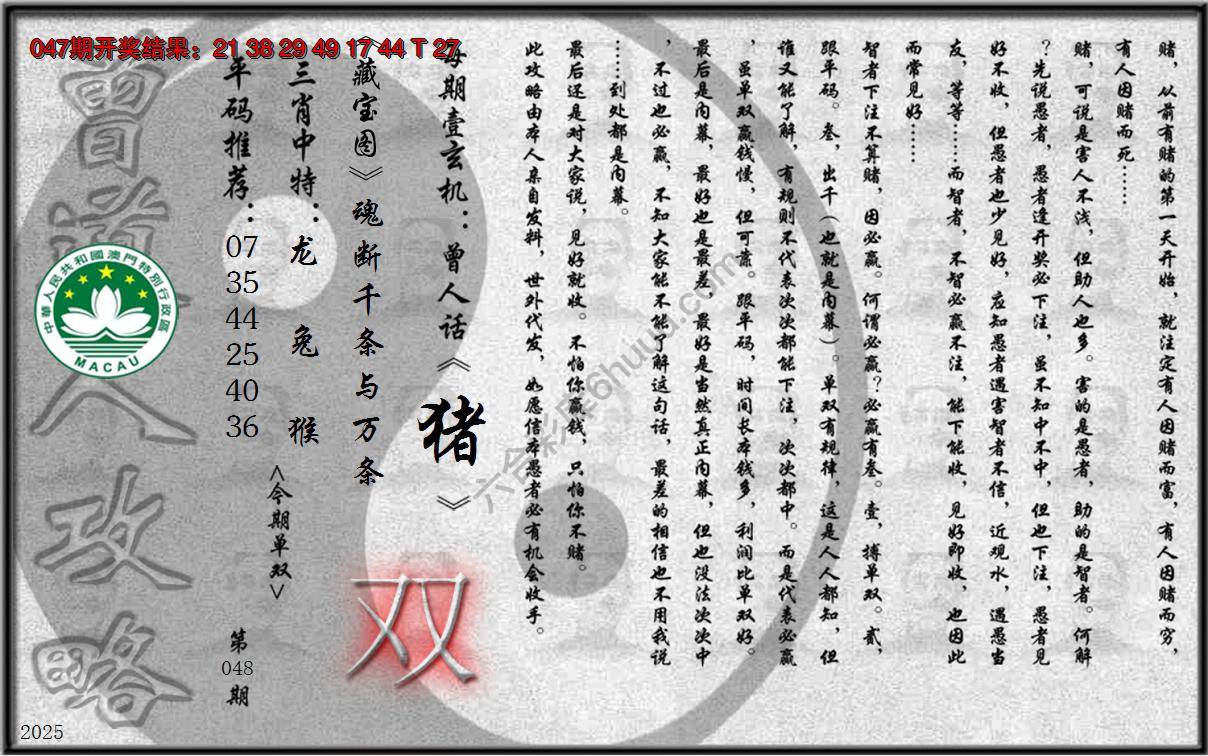 047期开奖结果：21 38 29 49 17 44 T 27
赌，从前有赌的第一天开始，就注定有人因赌而富，有人因赌而穷，
有人因赌而死……
赌，可说是害人不浅，但助人也多。害的是愚者，助的是智者。何解
？先说愚者，愚者逢开奖必下注，虽不知中不中，但也下注，愚者见
好不收，但愚者也少见好，应知愚者遇害智者不信，近观水，遇愚当
友，等等……而智者，不智必赢不注，能下能收，见好即收，也因此
而常见好……
智者下注不算赌，因必赢。何谓必赢？必赢有叁。壹，搏单双。贰，
跟平码。叁，出千（也就是内幕）。单双有规律，这是人人都知，但
谁又能了解，有规则不代表次次都能下注，次次都中。而是代表必赢
，虽单双赢钱慢，但可靠。跟平码，时间长本钱多，利润比单双好。
最后是内幕，最好也是最差，最好是当然真正内幕，但也没法次次中
，不过也必赢，不知大家能不能了解这句话，最差的相信也不用我说
……到处都是内幕。
最后还是对大家说，见好就收。不怕你赢钱，只怕你不赌。
此攻略由本人亲自发料，世外代发，如愿信本愚者必有机会收手。
每期壹玄机：曾人话《猪》
《藏宝图》魂断千条与万条
双
三肖中特：龙 兔 猴
<今期单双>
平码推荐：07 35 44 25 40 36
第048期
曾道人攻略
中華人民共和國澳門特別行政區
MACAU
六合彩库6huu.com
2025